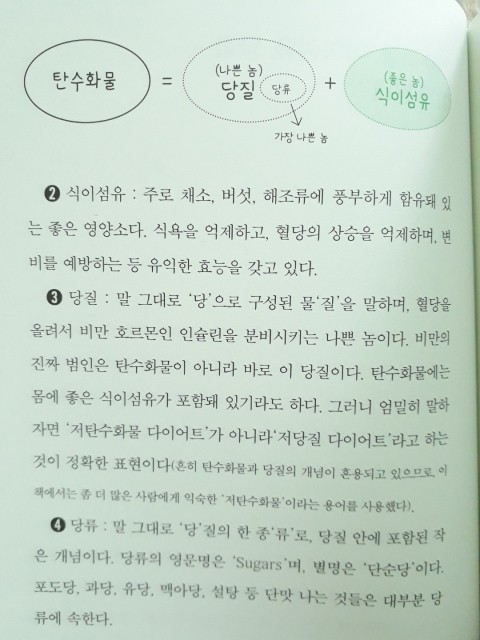 탄수화물 = (나쁜 놈) 당질 당류 + (좋은 놈) 식이섬유
가장 나쁜 놈
❷ 식이섬유 : 주로 채소, 버섯, 해조류에 풍부하게 함유돼 있
는 좋은 영양소다. 식욕을 억제하고, 혈당의 상승을 억제하며, 변
비를 예방하는 등 유익한 효능을 갖고 있다.
❸ 당질 : 말 그대로 ‘당’으로 구성된 물‘질’을 말하며, 혈당을
올려서 비만 호르몬인 인슐린을 분비시키는 나쁜 놈이다. 비만의
진짜 범인은 탄수화물이 아니라 바로 이 당질이다. 탄수화물에는
몸에 좋은 식이섬유가 포함돼 있기라도 하다. 그러니 엄밀히 말하
자면 ‘저탄수화물 다이어트’가 아니라 ‘저당질 다이어트’라고 하는
것이 정확한 표현이다(흔히 탄수화물과 당질의 개념이 혼용되고 있으므로 이
책에서는 좀 더 많은 사람에게 익숙한 ‘저탄수화물’이라는 용어를 사용했다).
❹ 당류 : 말 그대로 ‘당’질의 한 종‘류’로, 당질 안에 포함된 작
은 개념이다. 당류의 영문명은 ‘Sugars’며, 별명은 ‘단순당’이다.
포도당, 과당, 유당, 맥아당, 설탕 등 단맛 나는 것들은 대부분 당
류에 속한다.